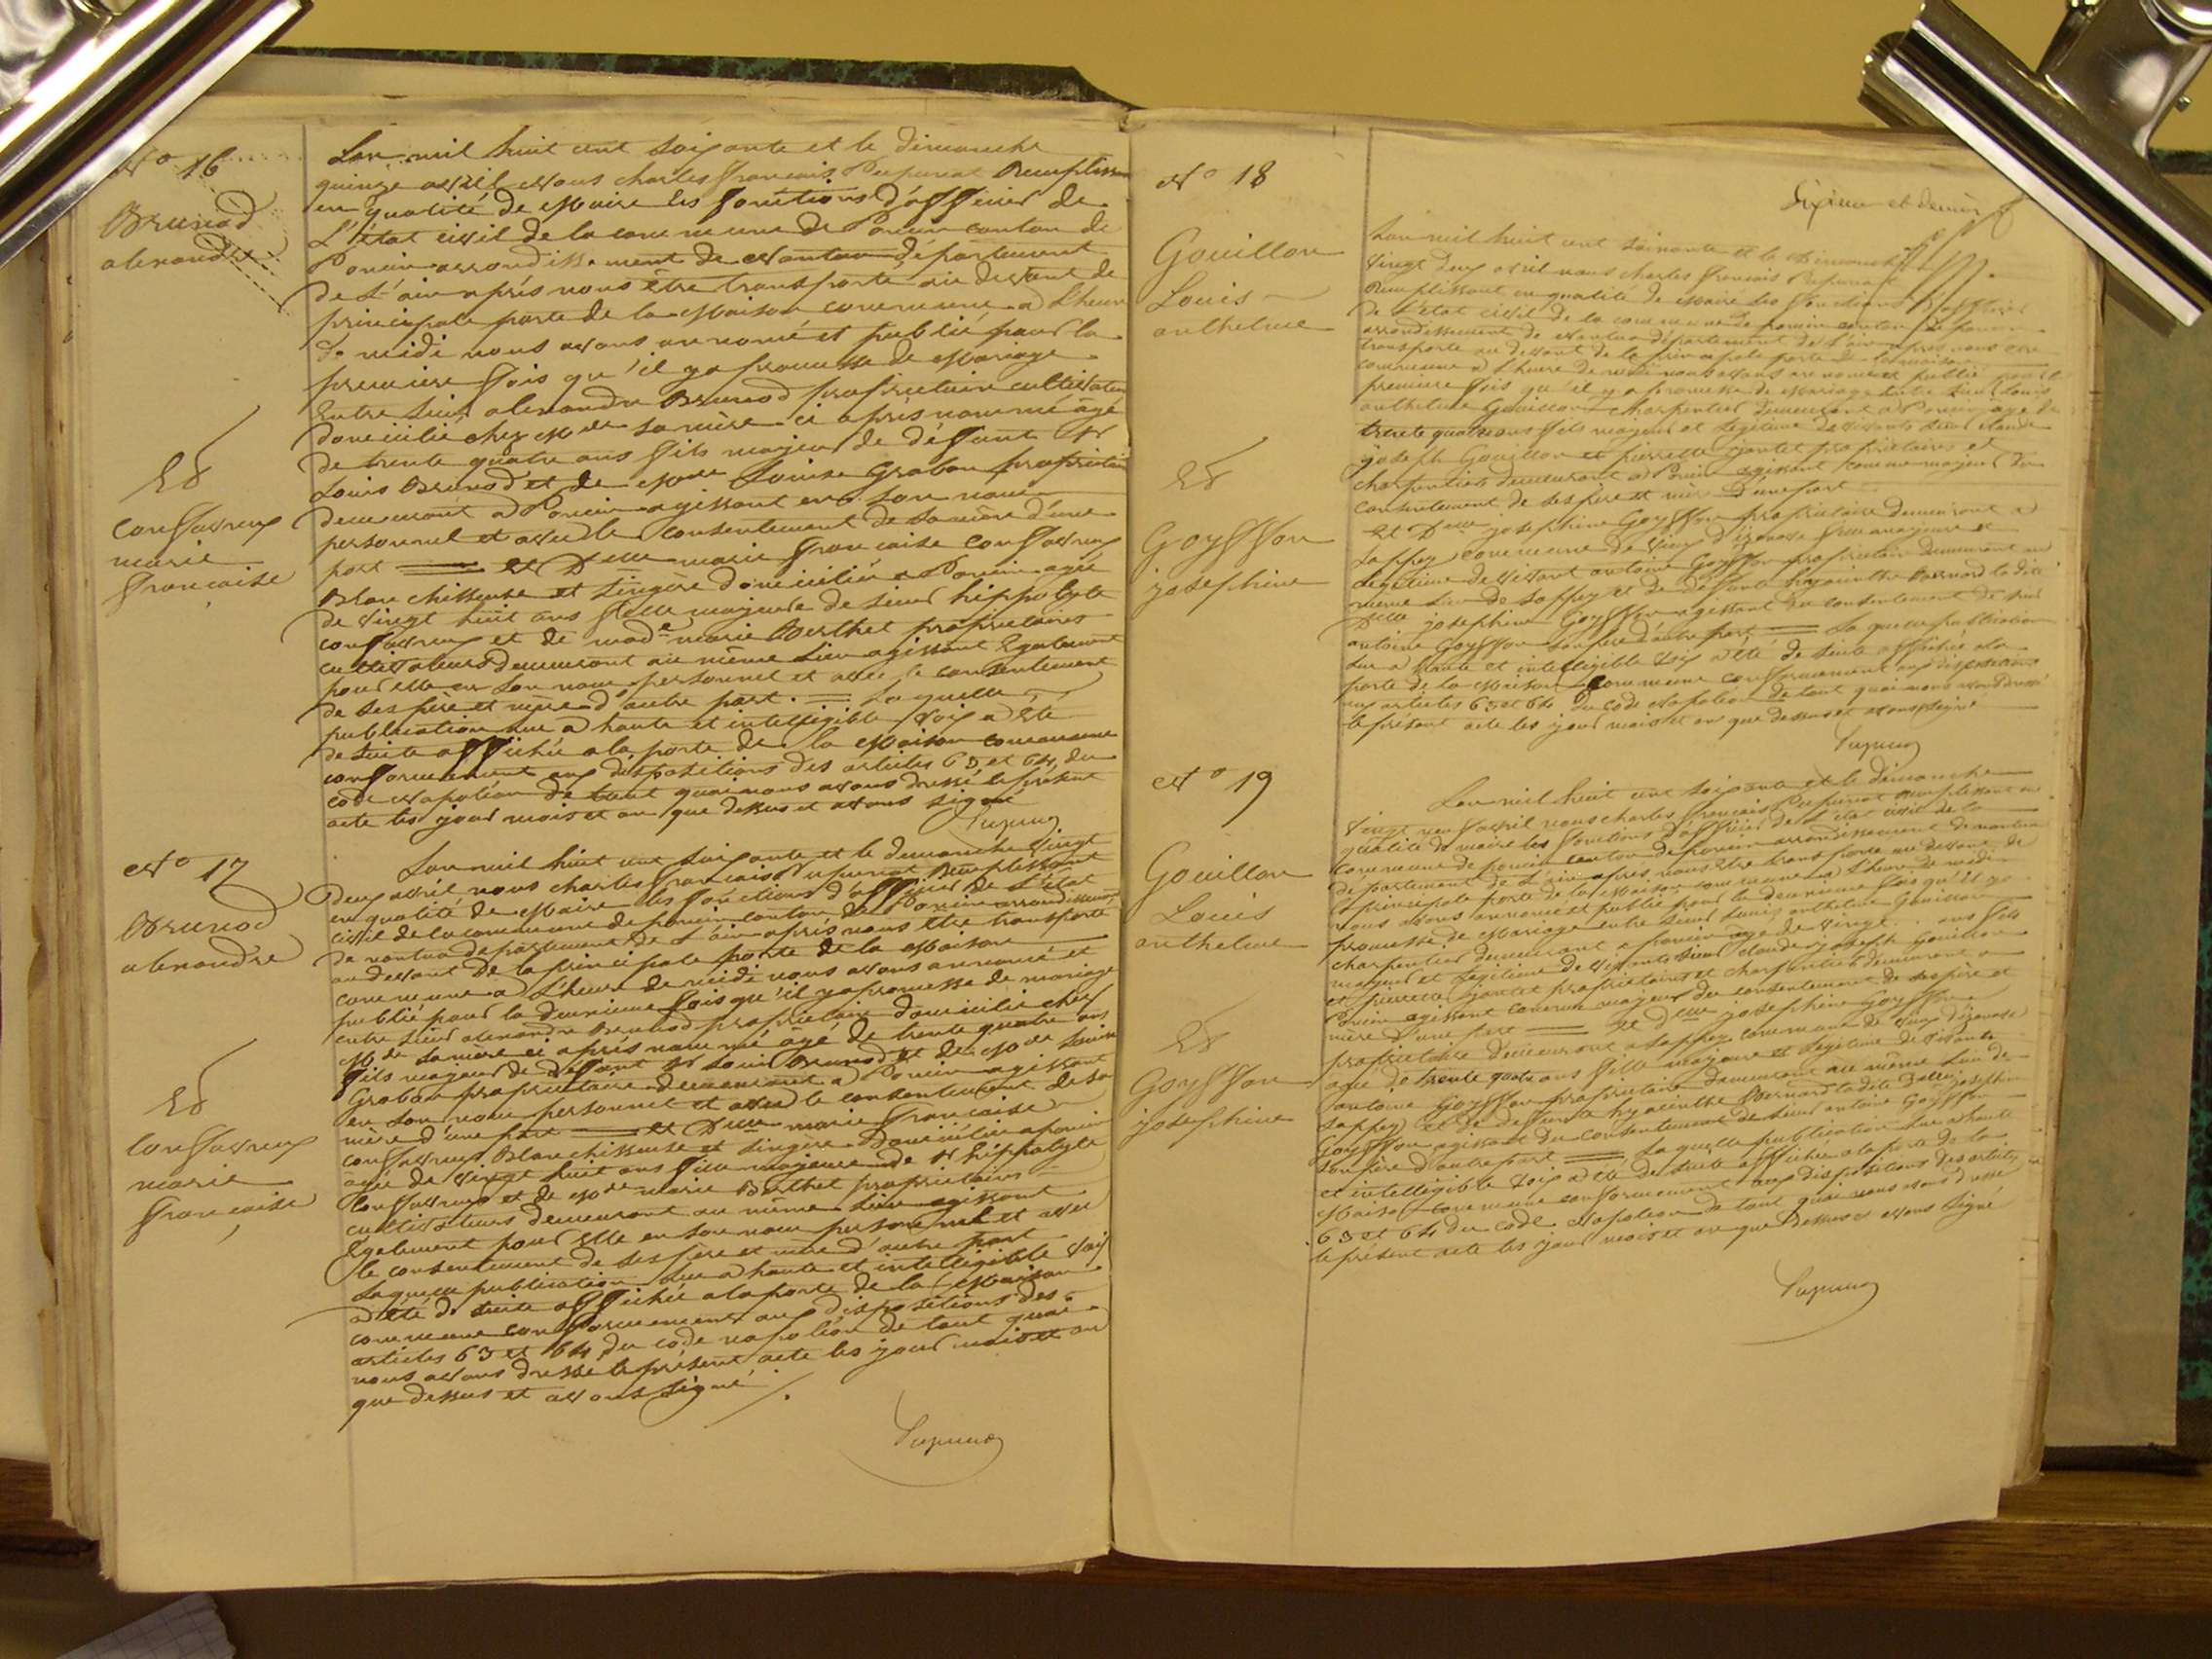 N° 16
Brunod
alexandre
Et
Confavreux
marie
françoise
Lan mil huit cent soixante et le dimanche
quinze avril nous charles françois Pupunat Remplissan
en qualité de Maire les fonctions d'officier de
L'état civil de la commune de Poncin canton de
Poncin arrondissement de Nantua département
de L'ain après nous être transporté au devant de
principale porte de la Maison commune a L'heure
de midi nous avons annoncé et publié pour la
première fois qu'il ya promesse de Mariage
Entre Sieur alexandre Brunod propriétaire cultivateur
domicilié chez Mde sa mère ci après nommé âgé
de trente quatre ans fils majeur de défunt Sr
Louis Brunod et de Mde Louise Graban propriétaire
demeurant a Poncin agissant en son nom
personnel et avec le consentement de sa mère d'une
part = Et Delle marie françoise Confavreux
Blanchisseuse et lingère domiciliée a Poncin agée
de vingt huit ans fille majeure de Sieur hippolyte
confavreux et de made marie Berthet propriétaires
cultivateurs demeurant au même Lieu agissant Egalement
pour elle en son nom personnel et avec le consentement
de ses père et mère d'autre part. = Laquelle
publication lue a haute et intelligible Voix a Ete
de suite affichée a la porte de la Maison commune
conformement aux dispositions des articles 63 et 64 du
code Napoléon de tout quoi nous avons dressé le présent
acte les jour mois et an que dessus et avons signé
Pupunat
N° 17
Brunod
alexandre
Et
Confavreux
marie
françoise
Lan mil huit cent soixante et le dimanche vingt
Deux avril nous charles françois Pupunat Remplissant
en qualité de Maire les fonctions d'officier de L'état
civil de la commune de poncin canton de Poncin arrondissement
de nantua departement de L'ain après nous etre transporté
au devant de la principale porte de la Maison
commune a L'heure de midi nous avons annoncé et
publié pour la deuxieme fois qu'il ya promesse de mariage
entre Sieur alexandre Brunod propriétaire domicilie chez
Mde sa mère ci après nommé âgé de trente quatre ans
fils majeur de défunt Sr Louis Brunod et de Mde Louise
Graban propriétaire demeurant a Poncin agissant
en son nom personnel et avec le consentement de sa
mère d'une part = et Delle marie françoise
confavreux Blanchisseuse et lingère domiciliée a poncin
agée de vingt huit ans fille majeure de Sr hippolyte
Confavreux et de Mde marie Berthet propriétaires
cultivateurs demeurant au même Lieu agissant
Egalement pour Elle en son nom personnel et avec
le consentement de ses père et mère d'autre part
Laquelle publication lue a haute et intelligible Voix
a été de suite affichée a la porte de la Maison
commune conformement aux dispositions des
articles 63 et 64 du code napoléon de tout quoi
nous avons dressé le présent acte les jour mois et an
que dessus et avons signé ./.
Pupunat
N° 18
Gouillon
Louis
anthelme
Et
Goyffon
josephine
Sixième et dernier
Lan mil huit cent soixante et le Dimanche
Vingt deux avril nous charles françois Pupunat
Remplissant en qualité de Maire les fonctions d'officier
de L'état civil de la commune de poncin canton de poncin
arrondissement de Nantua département de L'ain après nous etre
transporté au devant de la principale porte de la maison
commune a L'heure de midi nous avons annoncé et publié pour la
première fois qu'il y a promesse de Mariage Entre Sieur Louis
anthelme Gouillon charpentier demeurant a Poncin age de
trente quatre ans fils majeur et legitime de vivants Sieur claude
joseph Gouillon et pierrette jantet propriétaires et
charpentiers demeurant a Poncin agissant comme majeur du
consentement de ses père et mère d'une part
Et Delle josephine Goyffon propriétaire demeurant a
Sappey commune de Vieux d'izenave fille majeure et
legitime de vivant antoine Goyffon propriétaire demeurant au
meme Lieu de Sappey et de défunte hyacinthe Bernard ladite
Delle josephine Goyffon agissant du consentement de Sieur
antoine Goyffon son père d'autre part = Laquelle publication
Lue a haute et intelligible Voix a été de suite affichée a la
porte de la Maison Commune conformement aux dispositions
aux articles 63 et 64 du code Napoléon de tout quoi nous avons dressé
le présent acte les jour mois et an que dessus et avons signé
Pupunat
N° 19
Gouillon
Louis
anthelme
Et
Goyffon
josephine
Lan mil huit cent soixante et le dimanche
Vingt neuf avril nous charles françois Pupunat Remplissant en
qualité de maire les fonctions d'officier de L'état civil de la
commune de poncin canton de poncin arrondissement de nantua
département de L'ain après nous etre transporté au devant de
la principale porte de la Maison commune a L'heure de midi
nous avons annoncé et publié pour la deuxieme fois qu'il ya
promesse de Mariage entre Sieur Louis anthelme Gouillon
charpentier demeurant a poncin age de Vingt .. ans fils
majeur et legitime de vivants Sieur claude joseph Gouillon
et pierrette jantet propriétaires et charpentiers demeurant a
Poncin agissant comme majeur du consentement de ses père et
mère d'une part = et Delle josephine Goyffon
propriétaire demeurant a Sappey commune de Vieux d'izenave
agée de trente quatre ans fille majeure et legitime de vivant
antoine Goyffon propriétaire demeurant au même Lieu de
Sappey et de défunte hyacinthe Bernard ladite Delle josephine
Goyffon agissant du consentement de Sieur antoine Goyffon
son père d'autre part = Laquelle publication lue a haute
et intelligible Voix a été de suite affichée a la porte de la
Maison commune conformement aux dispositions des articles
63 et 64 du code Napoléon de tout quoi nous avons dressé
le présent acte les jour mois et an que Dessus et avons signé
Pupunat